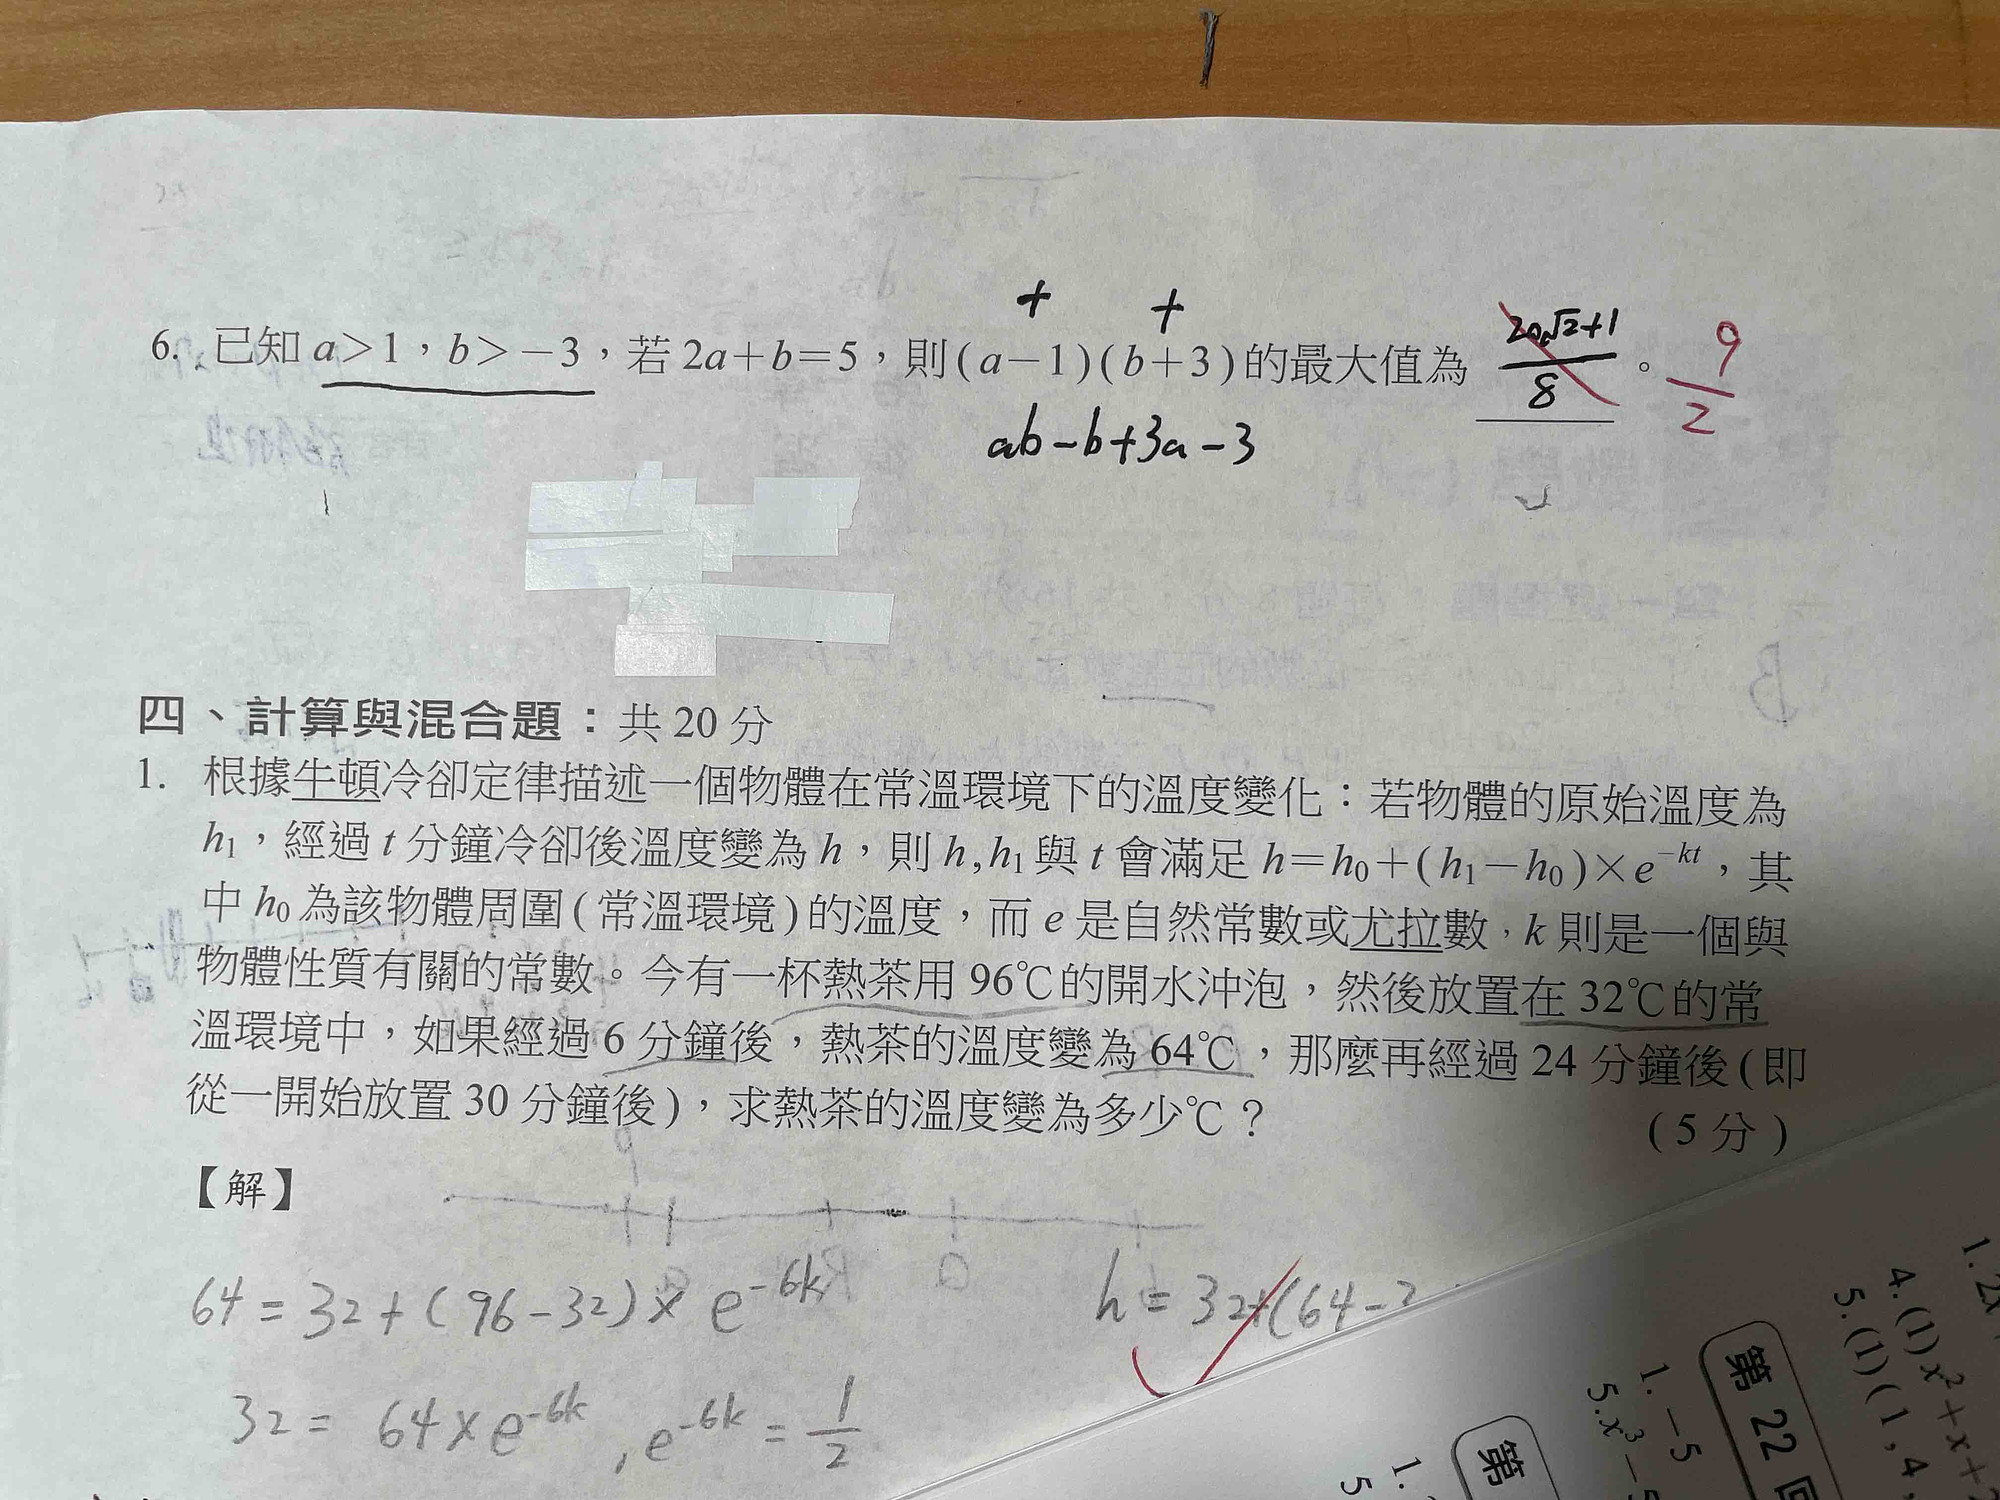 + +
6. 已知 a>1，b>−3，若 2a+b=5，則(a−1)(b+3)的最大值為 20√2+1/8 。 9/2
ab−b+3a−3
四、計算與混合題：共 20 分
1. 根據牛頓冷卻定律描述一個物體在常溫環境下的溫度變化：若物體的原始溫度為
h₁，經過 t 分鐘冷卻後溫度變為 h，則 h,h₁ 與 t 會滿足 h=h₀+(h₁−h₀)×e⁻ᵏᵗ，其
中 h₀ 為該物體周圍(常溫環境)的溫度，而 e 是自然常數或尤拉數，k 則是一個與
物體性質有關的常數。今有一杯熱茶用 96℃的開水沖泡，然後放置在 32℃的常
溫環境中，如果經過 6 分鐘後，熱茶的溫度變為 64℃，那麼再經過 24 分鐘後(即
從一開始放置 30 分鐘後)，求熱茶的溫度變為多少℃？
(5 分)
【解】
64=32+(96−32)×e⁻⁶ᵏ
h=32+(64−3
32=64×e⁻⁶ᵏ , e⁻⁶ᵏ=1/2
1. 2x
4. (1) x²+x+
5. (1)(1,4,
第 22 回
1. −5
5. x³−5
第
1.
5